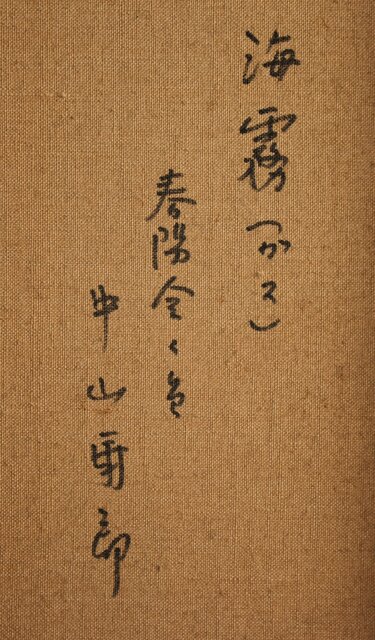 海霧(ガス)
春陽会々員
中山爾郎